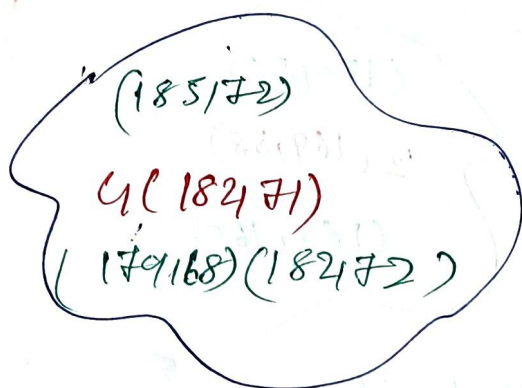 (185,72)
4(182,71)
(179,68)(182,72)